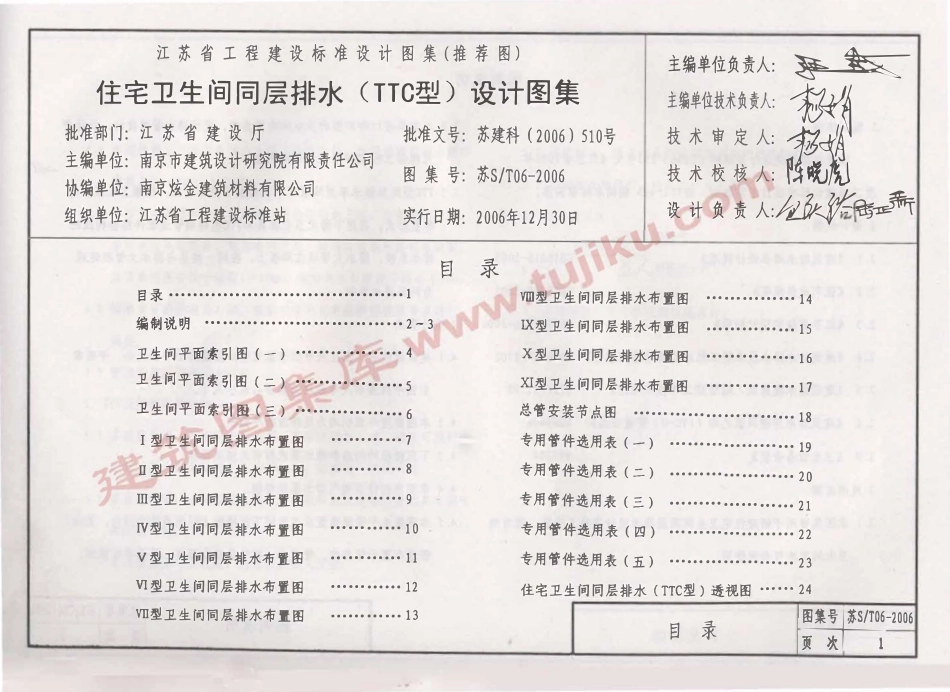 江苏省工程建设标准设计图集(推荐图)
住宅卫生间同层排水（TTC型）设计图集
批准部门：江苏省建设厅
主编单位：南京市建筑设计研究院有限责任公司
协编单位：南京炫金建筑材料有限公司
组织单位：江苏省工程建设标准站
批准文号：苏建科(2006)510号
图集号：苏S/T06-2006
实行日期：2006年12月30日
主编单位负责人：
主编单位技术负责人：
技术审定人：
技术校核人：陈晓虎
设计负责人：
目录
目录 1
编制说明 2-3
卫生间平面索引图(一) 4
卫生间平面索引图(二) 5
卫生间平面索引图(三) 6
Ⅰ型卫生间同层排水布置图 7
Ⅱ型卫生间同层排水布置图 8
Ⅲ型卫生间同层排水布置图 9
Ⅳ型卫生间同层排水布置图 10
Ⅴ型卫生间同层排水布置图 11
Ⅵ型卫生间同层排水布置图 12
Ⅶ型卫生间同层排水布置图 13
Ⅷ型卫生间同层排水布置图 14
Ⅸ型卫生间同层排水布置图 15
Ⅹ型卫生间同层排水布置图 16
Ⅺ型卫生间同层排水布置图 17
总管安装节点图 18
专用管件选用表(一) 19
专用管件选用表(二) 20
专用管件选用表(三) 21
专用管件选用表(四) 22
专用管件选用表(五) 23
住宅卫生间同层排水(TTC型)透视图 24
目录
图集号 苏S/T06-2006
页次 1
建筑图集库 www.tujiku.com